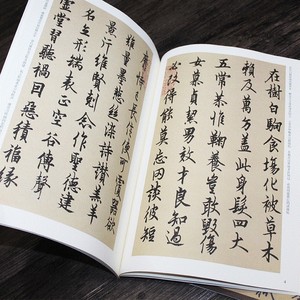 在樹白駒食場化被草木
賴及萬方蓋此身髮四大
五常恭惟鞠養豈敢毀傷
女慕貞絜男效才良知過
必改得能莫忘罔談彼短
靡恃己長信使可覆器欲
難量墨悲絲染詩讚羔羊
景行維賢剋念作聖德建
名立形端表正空谷傳聲
虛堂習聽禍因惡積福緣